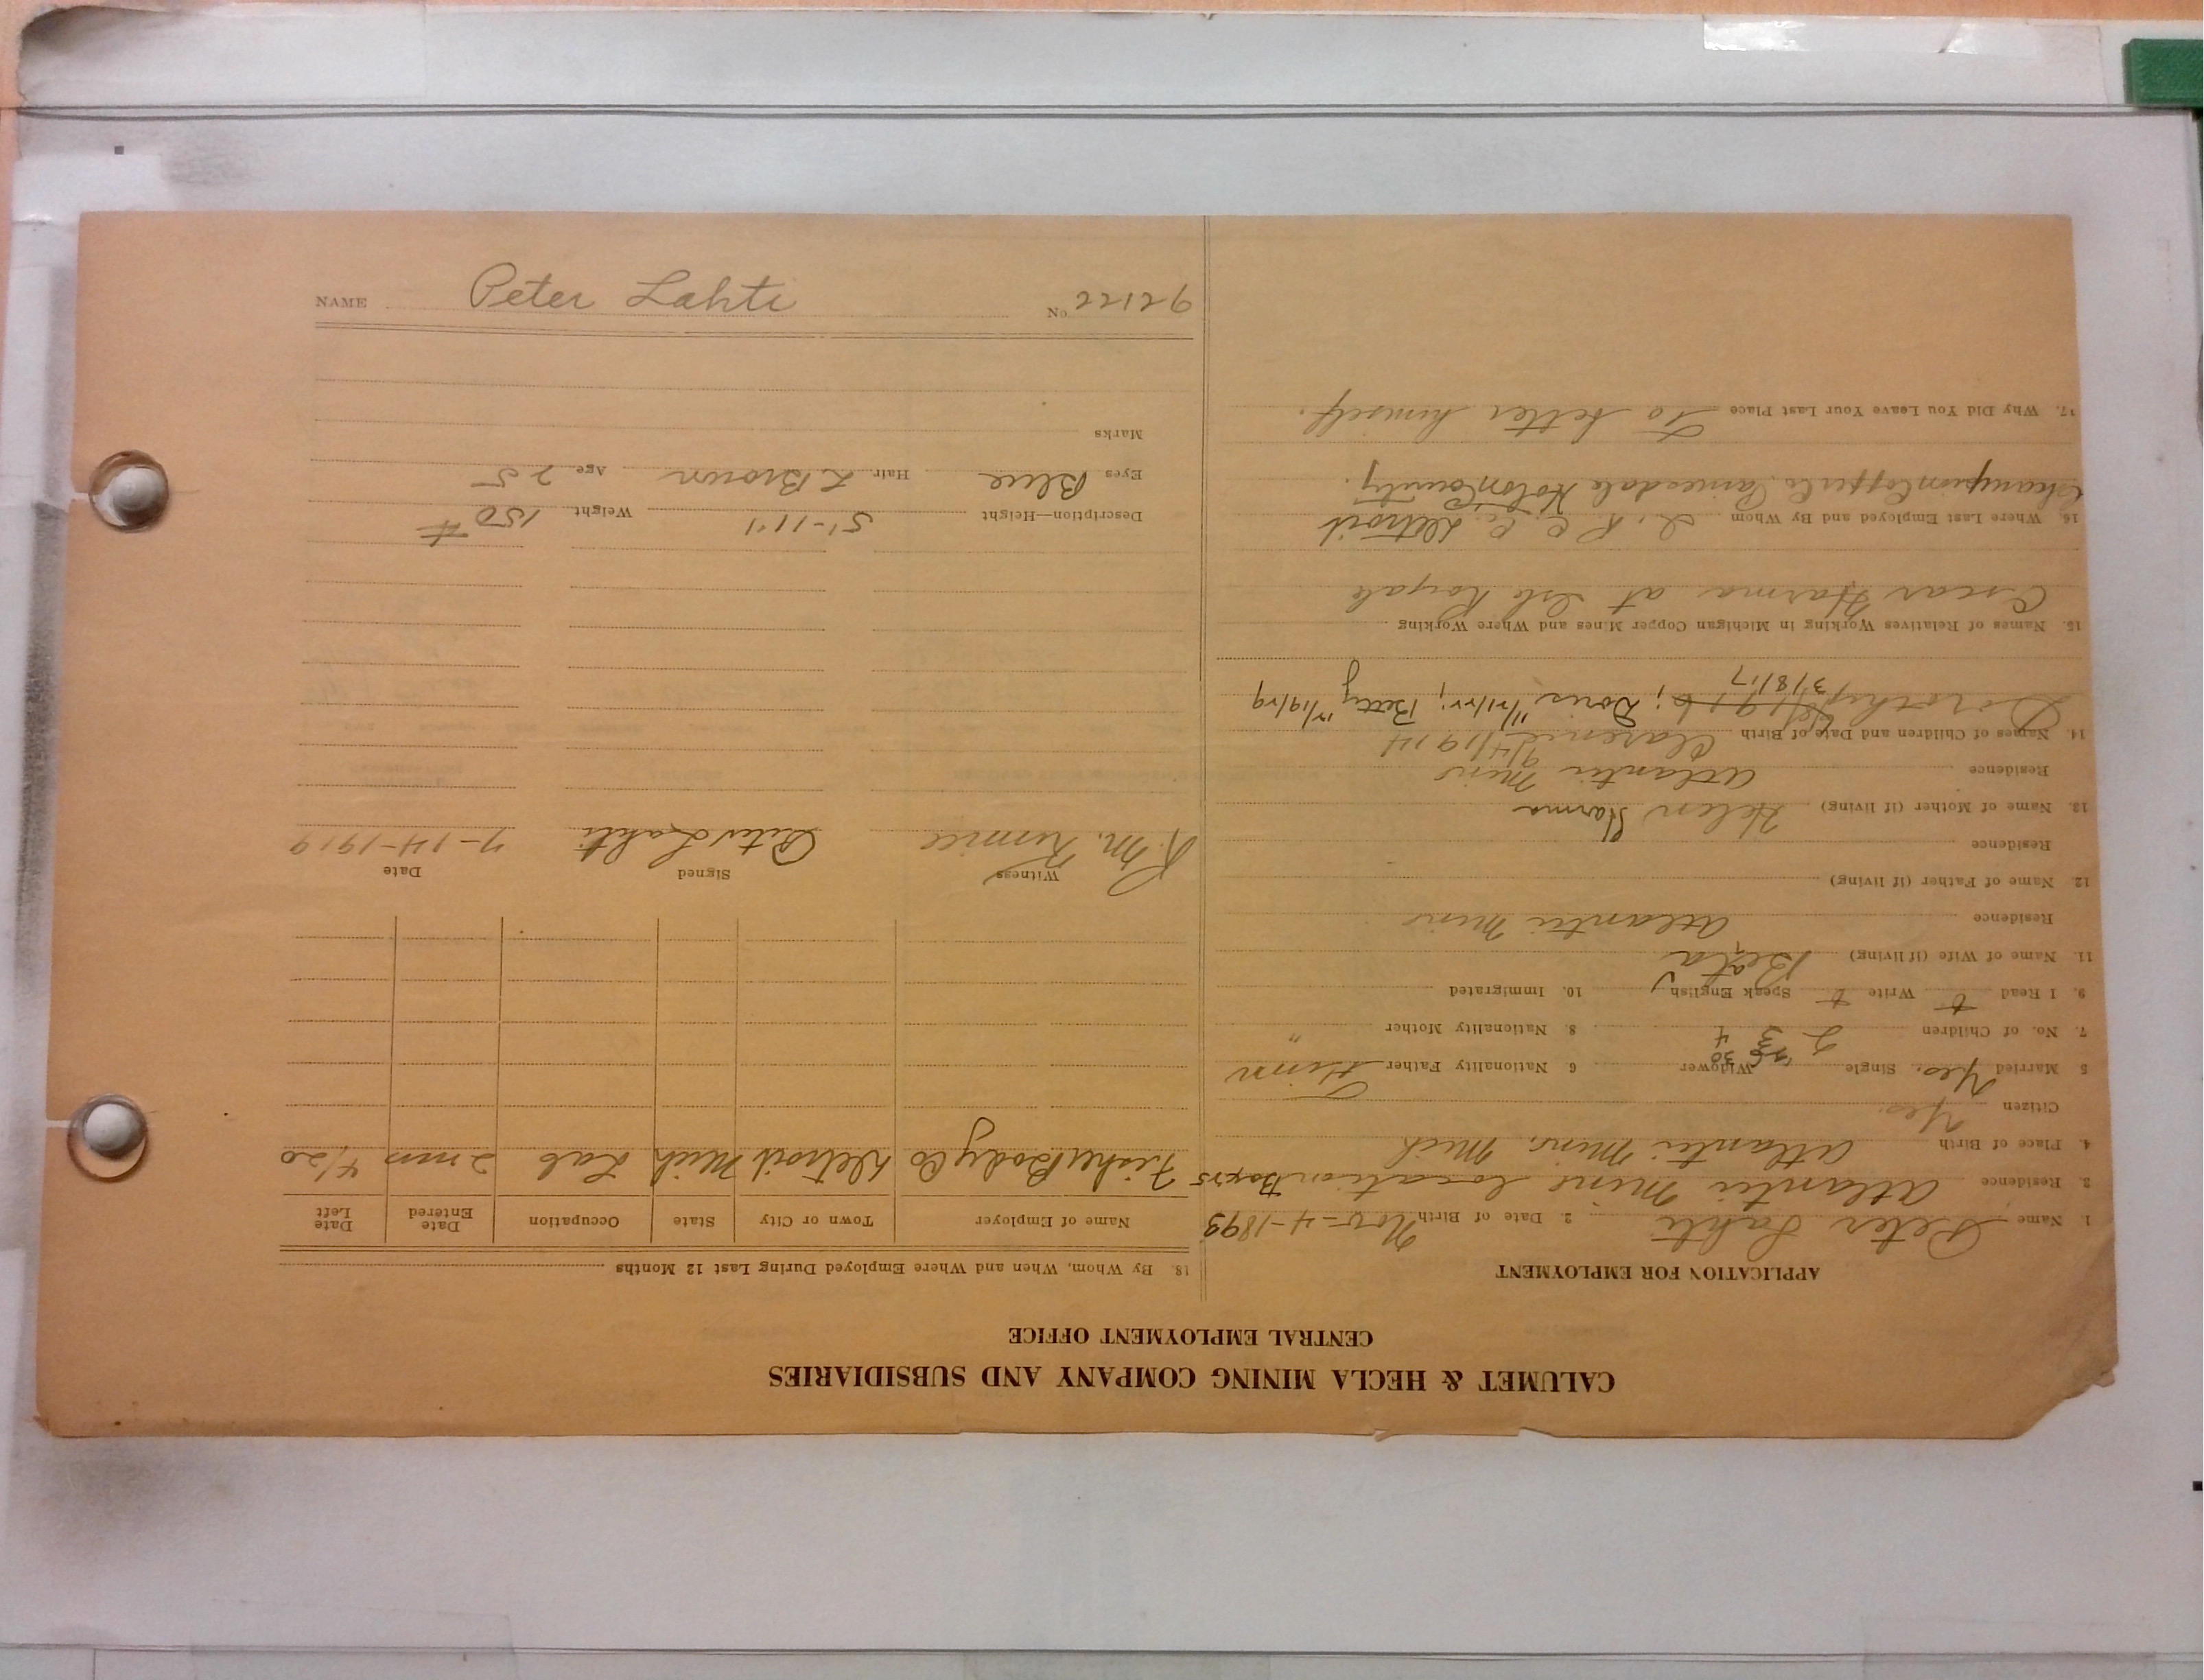 CALUMET & HECLA MINING COMPANY AND SUBSIDIARIES
CENTRAL EMPLOYMENT OFFICE
APPLICATION FOR EMPLOYMENT
1. Name Peter Lahti 2. Date of Birth Nov-4-1893
3. Residence Atlantic Mine Location Box 75
4. Place of Birth Atlantic Mine, Mich
Citizen Yes.
5 Married Yes. Single Widower 6 Nationality Father Finn
7. No. of Children 2 3 4 8. Nationality Mother "
9. I Read Write Speak English 10. Immigrated
11. Name of Wife (if living)
Residence Atlantic Mine
12. Name of Father (if living)
Residence
13. Name of Mother (if living) Helen Harma
Residence Atlantic Mine
14. Names of Children and Date of Birth Clarence 9/4/1914
Dorothy 3/8/17; Doris 11/21/22; Betty 12/19/29
15. Names of Relatives Working in Michigan Copper Mines and Where Working
Oscar Harma at Isle Royale
16. Where Last Employed and By Whom Detroit
Champion Copper Co. Painesdale Hoton County.
17. Why Did You Leave Your Last Place To better himself.
18. By Whom, When and Where Employed During Last 12 Months
Name of Employer Town or City State Occupation Date Entered Date Left
Fisher Body Co Detroit Mich Lab 2 mos 4/20
Witness Signed Date
R. M. Peter Lahti 7-14-1919
Description—Height 5'-11" Weight 150 #
Eyes Blue Hair L Brown Age 25
Marks
NAME Peter Lahti No 92122